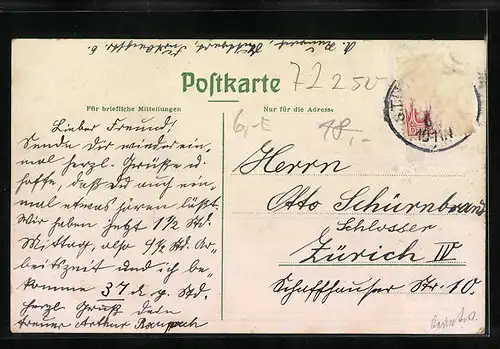 Postkarte
72250
Für briefliche Mitteilungen
Nur für die Adresse
6,-E
48,-
Lieber Freund!
Sende dir wieder ein-
mal herzl. Grüße u.
hoffe, daß du auch ein-
mal etwas hören läßt.
Wir haben jetzt 1½ Std.
Mittag, also 9½ Std. Ar-
beitszeit und ich be-
komme 37 d. p. Std.
herzl Gruß dein
treuer Arthur
Herrn
Otto Schürnbrand
Schlosser
Zürich IV
Schaffhauser Str. 10.